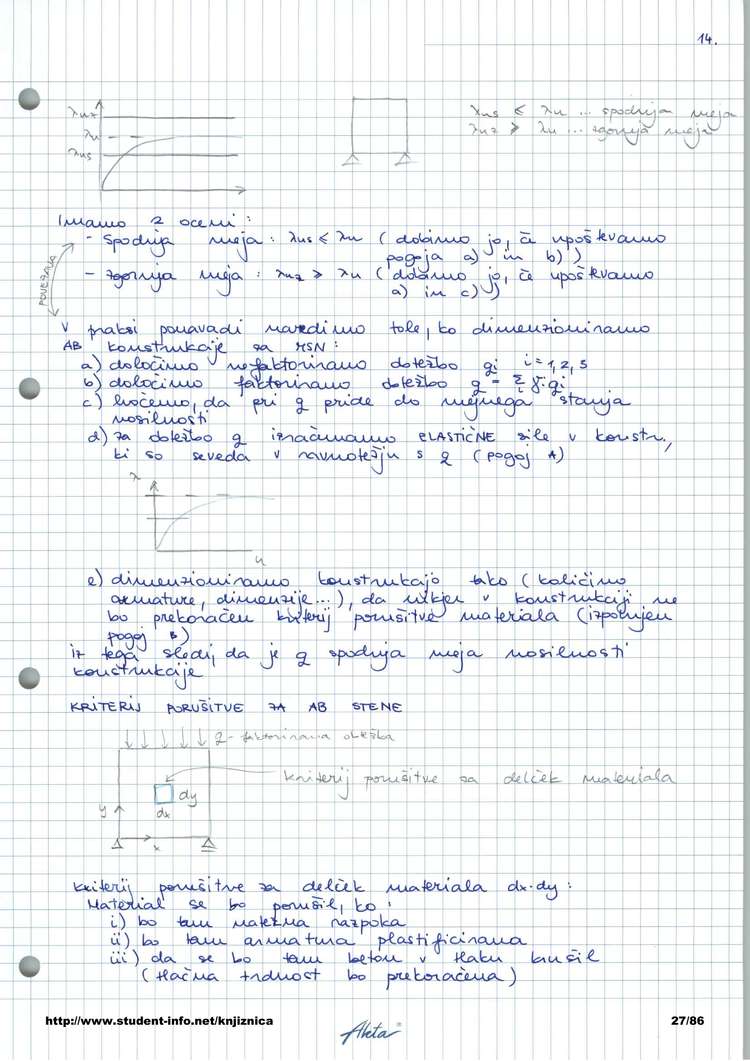 14.
λuz
λu
λus
λus ≤ λu ... spodnja meja
λuz ≥ λu ... zgornja meja
Imamo 2 oceni:
- Spodnja meja: λus ≤ λu (dobimo jo, če upoštevamo
pogoja a) in b))
- zgornja meja: λuz ≥ λu (dobimo jo, če upoštevamo
a) in c))
V praksi ponavadi naredimo tole, ko dimenzioniramo
AB konstrukcije za MSN:
a) določimo nefaktorirano obtežbo gi i=1,2,3
b) določimo faktorirano obtežbo q = Σ γi·gi
c) hočemo, da pri q pride do mejnega stanja
nosilnosti
d) za obtežbo q izračunamo ELASTIČNE sile v konstr.,
ki so seveda v ravnotežju s q (pogoj A)
λ
u
e) dimenzioniramo konstrukcijo tako (količino
armature, dimenzije...), da nikjer v konstrukciji ne
bo prekoračen kriterij porušitve materiala (izpolnjen
pogoj B)
iz tega sledi, da je q spodnja meja nosilnosti
konstrukcije
KRITERIJ PORUŠITVE ZA AB STENE
q - faktorirana obtežba
kriterij porušitve za delček materiala
dy
y
dx
x
Kriterij porušitve za delček materiala dx·dy:
Material se bo porušil, ko:
i) bo tam natezna razpoka
ii) bo tam armatura plastificirana
iii) da se bo tam beton v tlaku krušil
(tlačna trdnost bo prekoračena)
http://www.student-info.net/knjiznica
Akta
27/86